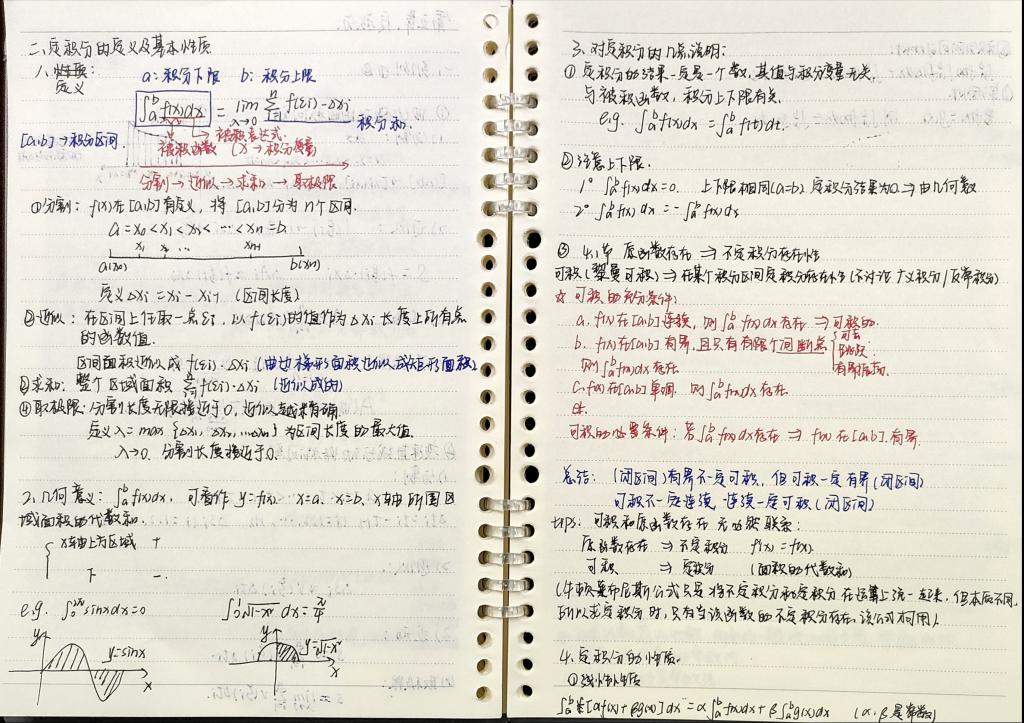 二、定积分的定义及基本性质
1、性质:
定义
a: 积分下限 b: 积分上限
∫ₐᵇ f(x)dx = lim_{λ→0} Σ_{i=1}^{n} f(ξi)·Δxi
积分和.
[a,b]→积分区间.
→ 被积表达式.
被积函数 (x→积分变量)
分割→近似→求和→取极限
①分割: f(x)在[a,b]有定义, 将[a,b]分为n个区间.
a=x₀<x₁<x₂<…<xn=b.
x₁ x₂ … xn-1
a(x₀) b(xn)
定义Δxi=xi-xi-1 (区间长度)
②近似: 在区间上任取一点ξi, 以f(ξi)的值作为Δxi长度上所有点
的函数值.
区间面积近似成f(ξi)·Δxi (曲边梯形面积近似成矩形面积)
③求和: 整个区域面积 Σ_{i=1}^{n} f(ξi)·Δxi (近似成的)
④取极限: 分割长度无限接近于0, 近似越来精确.
定义λ=max{Δx₁, Δx₂, …Δxn}为区间长度的最大值.
λ→0. 分割长度接近于0.
2、几何意义: ∫ₐᵇ f(x)dx, 可看作 y=f(x), x=a, x=b, x轴所围区
域面积的代数和.
{ x轴上方区域 +
下 -.
e.g. ∫₀^{2π} sinxdx=0 ∫₀¹ √1-x² dx=π/4
y y=sinx x
y y=√1-x² x
3、对定积分的几点说明:
① 定积分的结果一定是一个数, 其值与积分变量无关,
与被积函数, 积分上下限有关.
e.g. ∫ₐᵇ f(x)dx = ∫ₐᵇ f(t)dt.
②注意上下限.
1° ∫ₐᵇ f(x)dx=0. 上下限相同(a=b), 定积分结果为0 → 由几何数
2° ∫ₐᵇ f(x)dx = -∫ₐᵇ f(x)dx
③ 4.1节 原函数存在 ⇒ 不定积分存在性
可积(黎曼可积)⇒在某个积分区间定积分存在性(不讨论广义积分/反常积分)
☆ 可积的充分条件:
a. f(x)在[a,b]连续, 则∫ₐᵇ f(x)dx存在 ⇒ 可积的.
b. f(x)在[a,b]有界, 且只有有限个间断点 { 可去
则∫ₐᵇ f(x)dx存在.
C. f(x)在[a,b]单调. 则∫ₐᵇ f(x)dx存在.
可积的必要条件: 若∫ₐᵇ f(x)dx存在 ⇒ f(x)在[a,b]有界.
总结: (闭区间)有界不一定可积, 但可积一定有界(闭区间)
可积不一定连续, 连续一定可积(闭区间)
tips: 可积和原函数存在无必然联系:
原函数存在 ⇒ 不定积分 F'(x)=f(x).
可积 ⇒ 定积分 (面积的代数和)
(牛顿莱布尼斯公式只是将不定积分和定积分在运算上统一起来, 但本质不同,
所以求定积分时, 只有当该函数的不定积分存在, 该公式才可用)
4、定积分的性质.
①线性性质
∫ₐᵇ [αf(x)+βg(x)]dx = α∫ₐᵇ f(x)dx+β∫ₐᵇ g(x)dx (α,β是常数)